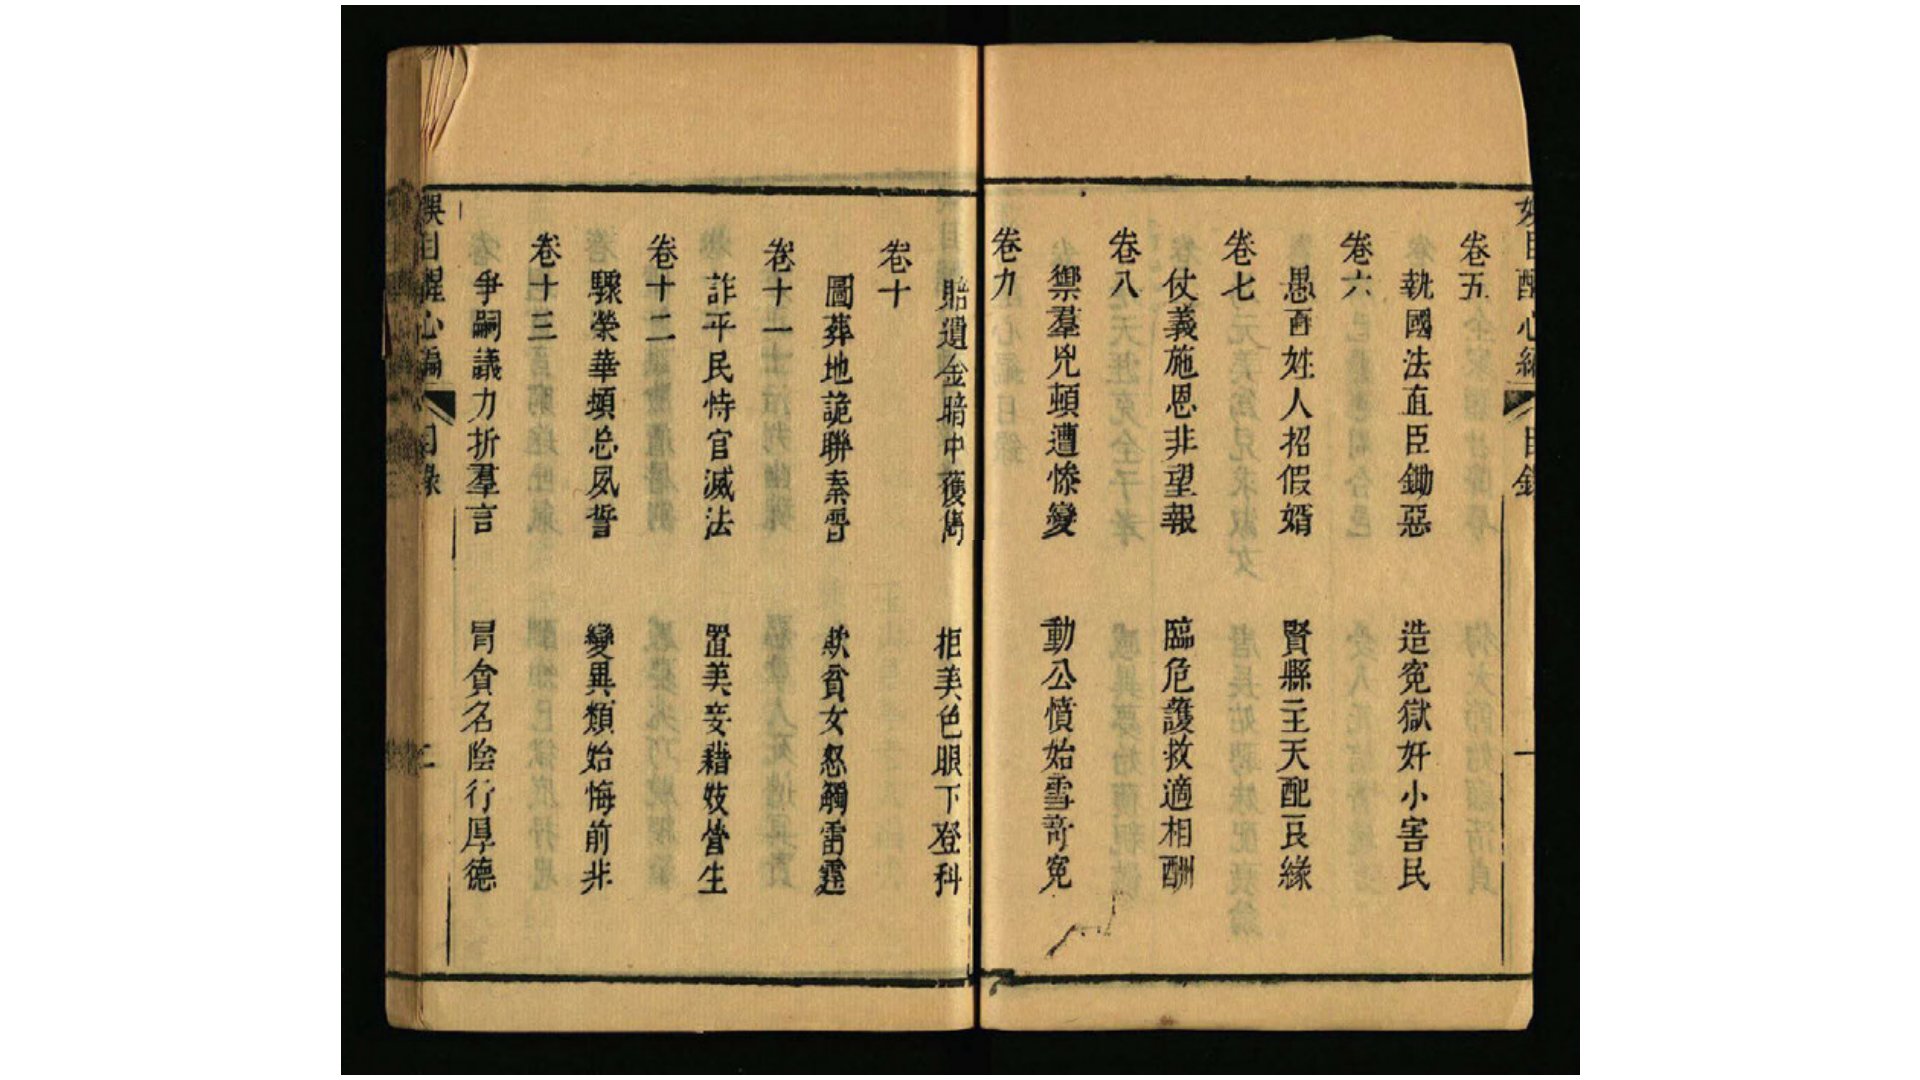 娛目醒心編 目錄 一
卷五
執國法直臣鋤惡 造寃獄奸小害民
卷六
愚百姓人招假婿 賢縣主天配良緣
卷七
仗義施恩非望報 臨危護救適相酬
卷八
禦羣兇頓遭慘變 動公憤始雪奇寃
卷九
賠遺金暗中獲雋 拒美色眼下登科
卷十
圖葬地詭聯秦晉 欺貧女怒觸雷霆
卷十一
詐平民恃官滅法 置美妾藉妓營生
卷十二
驟榮華頓忘夙誓 變異類始悔前非
卷十三
爭嗣議力折羣言 冒貪名陰行厚德
娛目醒心編 目錄 二